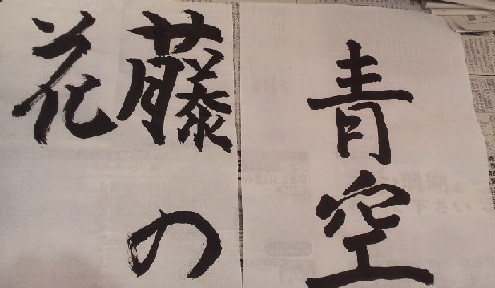 青空
藤の
花